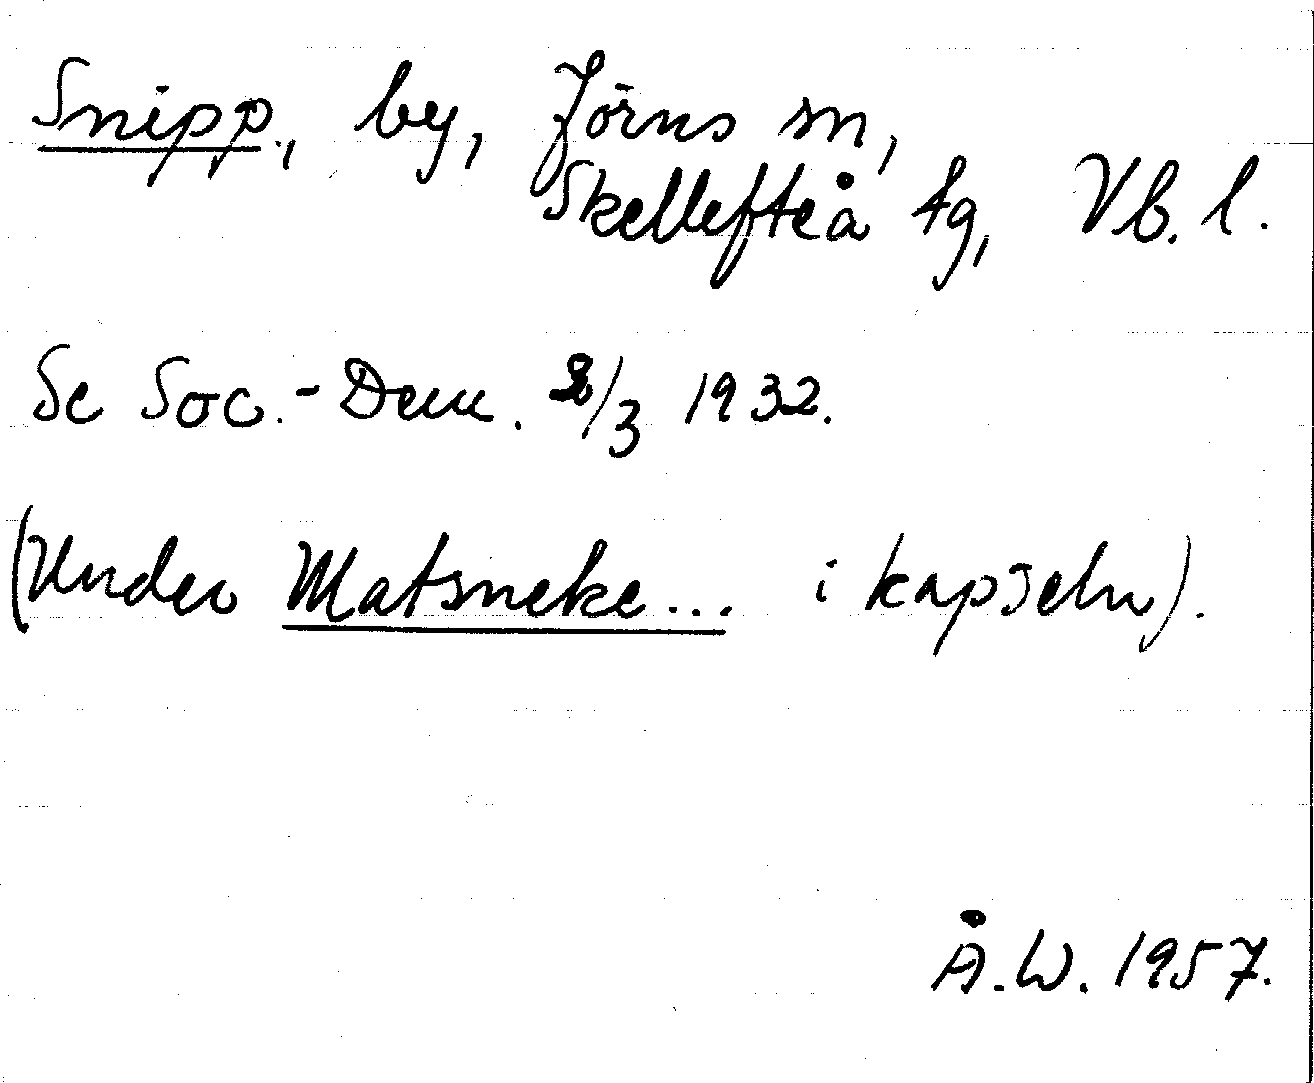 Snipp, by, Jörns sn,
Skellefteå tg, Vb. l.
Se Soc.-Dem. 2/3 1932.
(Under Matsneke... i kapseln).
Å.W. 1957.